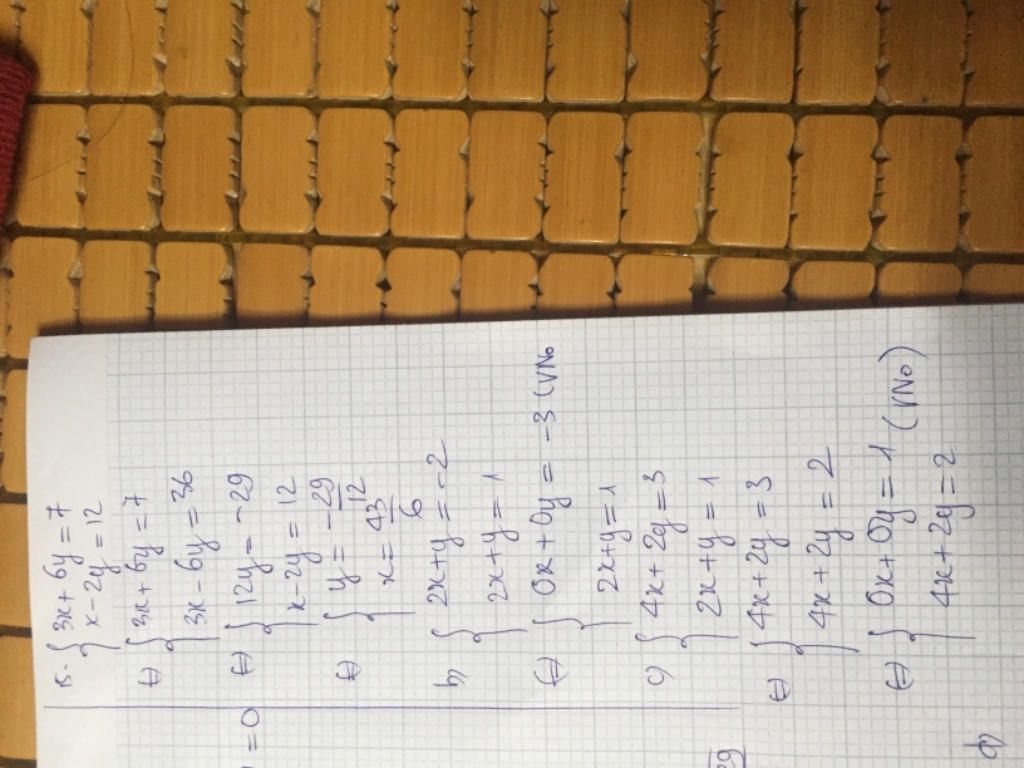 15. { 3x + 6y = 7
x - 2y = 12
(=) { 3x + 6y = 7
3x - 6y = 36
(=) { 12y = -29
x - 2y = 12
(=) { y = -29/12
x = 43/6
b) { 2x + y = -2
2x + y = 1
(=) { 0x + 0y = -3 (VNo
2x + y = 1
c) { 4x + 2y = 3
2x + y = 1
(=) { 4x + 2y = 3
4x + 2y = 2
(=) { 0x + 0y = 1 (VNo)
4x + 2y = 2
= 0